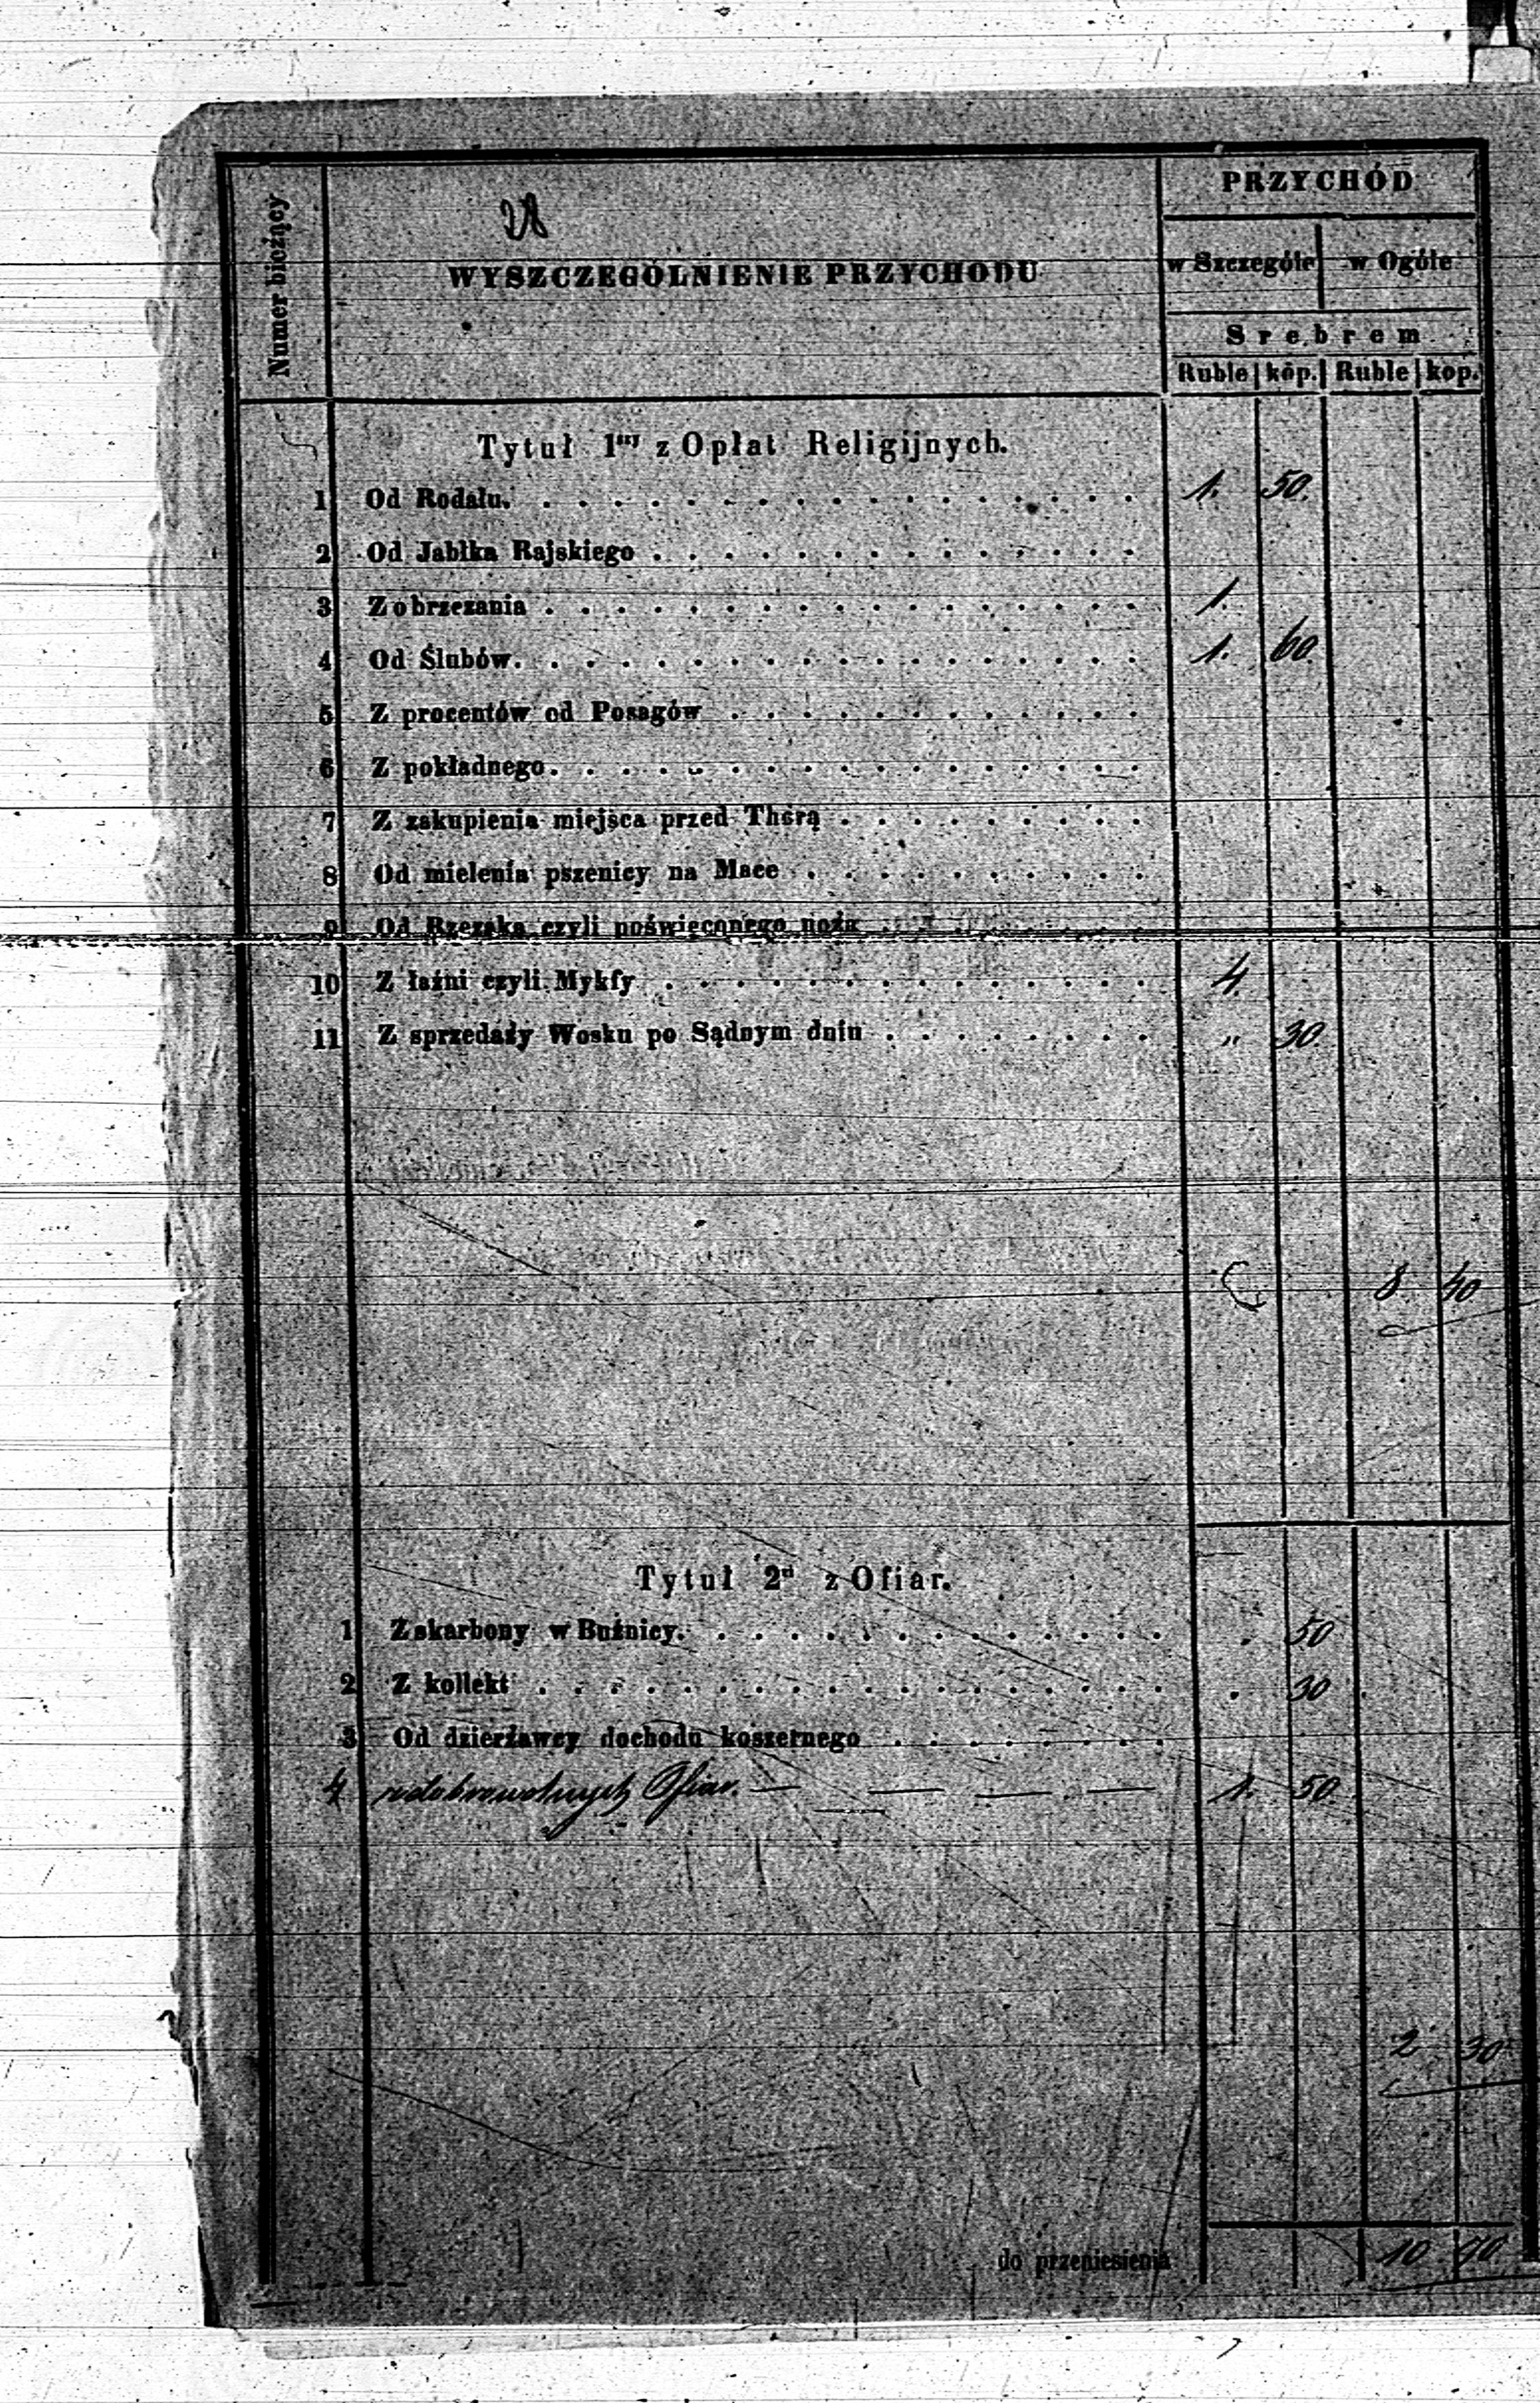 28
Numer bieżący
WYSZCZEGÓLNIENIE PRZYCHODU
PRZYCHÓD
w Szczególe w Ogóle
Srebrem
Ruble kop. Ruble kop.
Tytuł 1ny z Opłat Religijnych.
1 Od Rodału. 1. 50.
2 Od Jabłka Rajskiego
3 Z obrzezania 1.
4 Od Ślubów. 1. 60.
5 Z procentów od Posagów
6 Z pokładnego.
7 Z zakupienia miejsca przed Thorą
8 Od mielenia pszenicy na Mace
9 Od Rzezaka czyli poświęconego noża
10 Z łaźni czyli Mykfy 4.
11 Z sprzedaży Wosku po Sądnym dniu " 30.
8 40
Tytuł 2gi z Ofiar.
1 Z skarbony w Bużnicy. . 50
2 Z kollekt . 30
3 Od dzierżawcy dochodu koszernego
4 z dobrowolnych Ofiar. 1. 50.
2 30
do przeniesienia 10 70